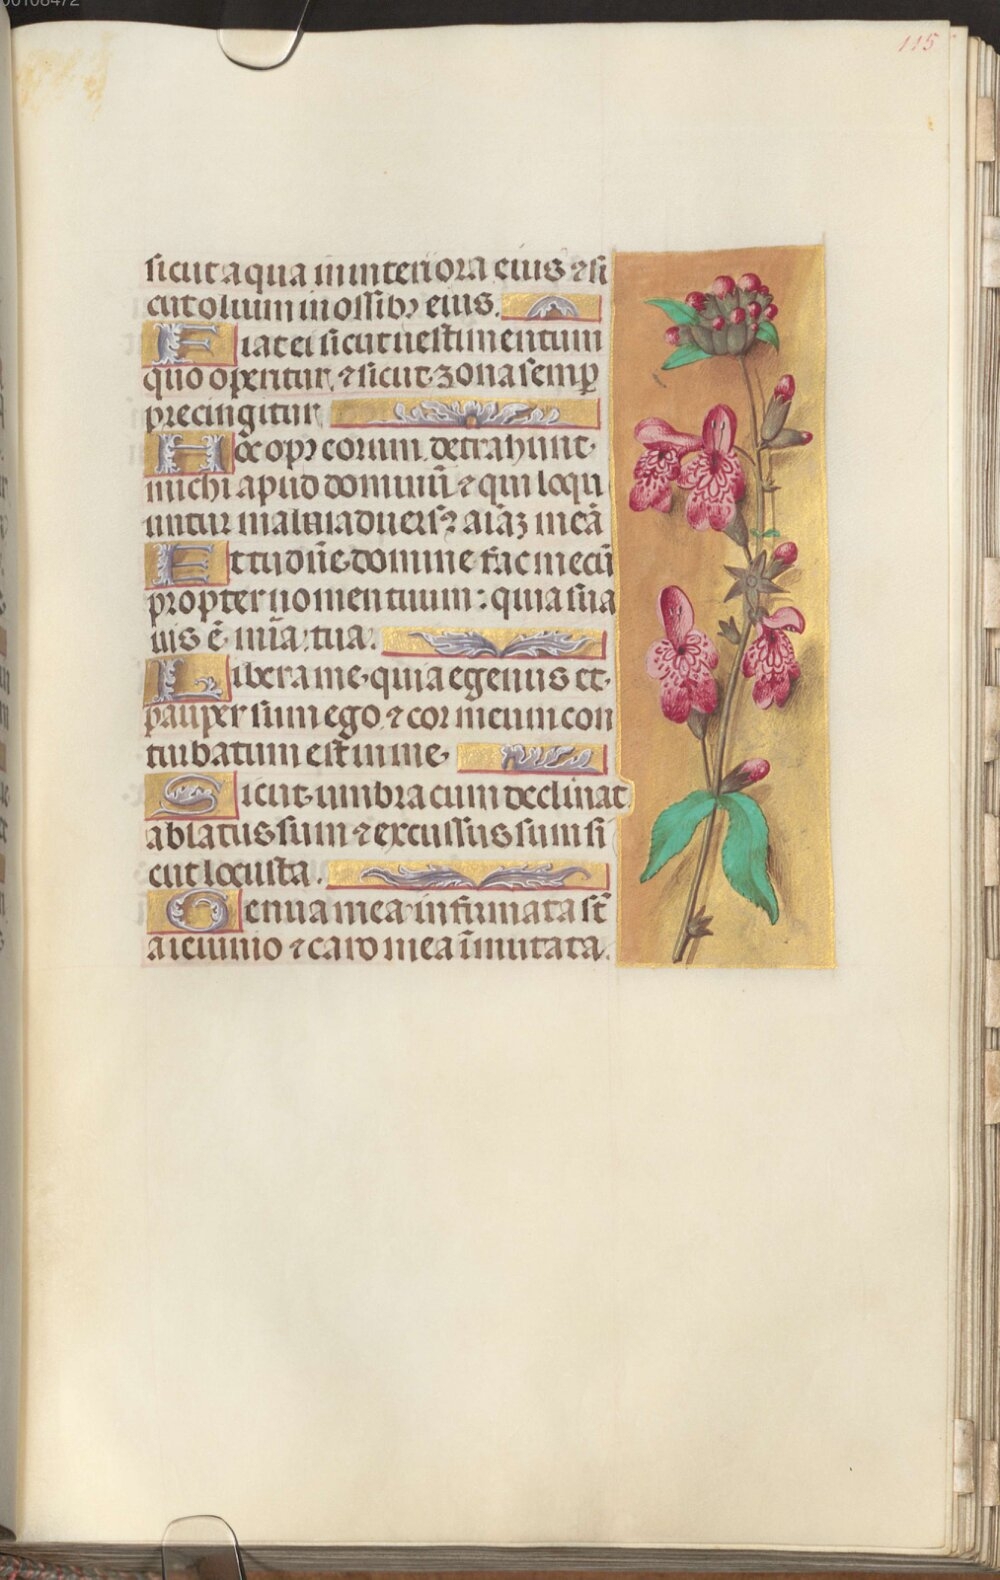 00108472
115
sicut aqua in interiora eius ⁊ si
cut oleum in ossibꝫ eius.
Fiat ei sicut uestimentum
quo operitur, ⁊ sicut zona semꝑ
precingitur
Hoc opꝰ eorum detrahunt
michi apud dominū ⁊ qui loqu
untur mala aduersꝰ aiāꝫ meā
Et tu dn̄e domine fac mecū
propter nomen tuum: quia sua
uis ē mīa tua.
Libera me quia egenus et
pauper sum ego ⁊ cor meum con
turbatum est in me
Sicut umbra cum declinat
ablatus sum ⁊ excussus sum si
cut locusta.
Genua mea infirmata st̄
a ieiunio ⁊ caro mea īmutata.